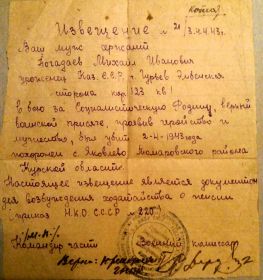 (копия)
Извещение № 21 3.4.43г.
Ваш муж
Богадаев Михаил Иванович
уроженец Каз. С.С.Р. г. Гурьев
сторона 123 кв
В бою за Социалистическую Родину, верный
воинской присяге, проявив геройство и
мужество, был убит 2-4-1943 года
похоронен с. Яковлево Томаровского района
Курской области.
Настоящее извещение является документом
для возбуждения ходатайства о пенсии
приказ Н.К.О. С.С.С.Р. № 220
/М.П./
Командир части Военный комиссар
Верно: